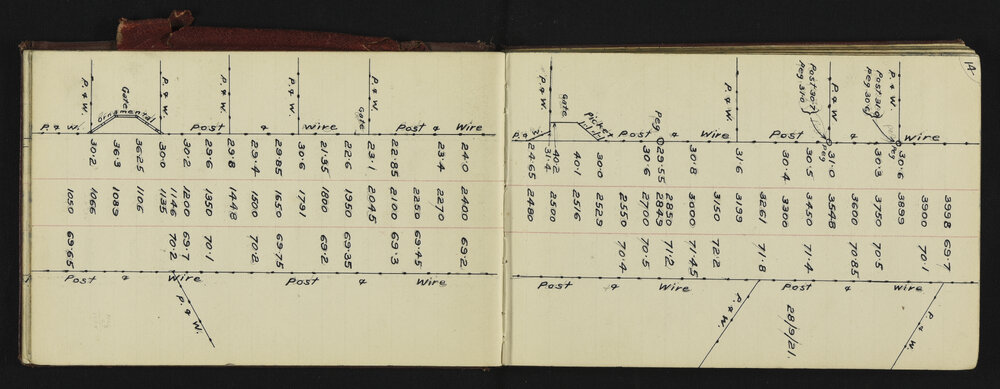 P. & W.
P. & W.
P. & W.
P. & W.
P. & W.
Gate
Ornamental
Gate
P. & W.
Post & Wire
Post & Wire
30.2
36.3
36.25
30.0
30.2
29.6
29.8
29.4
29.85
30.6
21.35
22.6
23.1
22.85
23.4
24.0
1050
1066
1089
1106
1135
1146
1200
1350
1448
1500
1650
1791
1800
1950
2045
2100
2250
2270
2400
69.65
70.2
69.7
70.1
70.2
69.75
69.2
69.35
69.3
69.45
69.2
Post & Wire
Post & Wire
P. & W.
14.
P. & W.
Gate
Picket
Peg
P. & W.
Post 307
Peg 310
P. & W.
Post 310
Peg 306
P. & W.
P. & W
Post & Wire
Peg
Post & Wire
Peg
24.65
31.4
40.2
40.1
30.0
30.6
29.55
30.8
31.6
30.4
30.5
31.0
30.3
30.6
2480
2500
2516
2529
2550
2700
2849
2850
3000
3150
3199
3261
3300
3450
3548
3600
3750
3899
3900
3998
70.4
70.5
71.2
71.45
72.2
71.8
71.4
70.85
70.5
70.1
69.7
Post & Wire
Post & Wire
P. & W.
28/9/21.
P. & W.